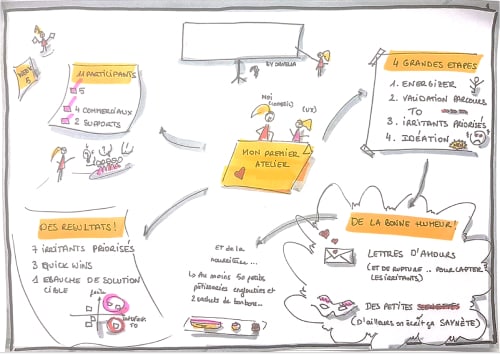 BY DANIELA
WEEK 5
11 PARTICIPANTS
5
4 COMMERCIAUX
2 SUPPORTS
MOI
(UX)
MON PREMIER
ATELIER
4 GRANDES ETAPES
1. ENERGIZER
2. VALIDATION PARCOURS
TO
3. IRRITANTS PRIORISÉS
4. IDÉATION
DES RESULTATS!
7 IRRITANTS PRIORISÉS
3 QUICK WINS
1 EBAUCHE DE SOLUTION
CIBLE
TO
ET de la
nourriture...
Au moins 50 petites
pâtisseries englouties et
2 sachets de bonbons...
DE LA BONNE HUMEUR!
LETTRES D'AMOURS
(ET DE RUPTURE .. POUR CAPTER
LES IRRITANTS)
DES PETITES
(D'ailleurs on écrit ça SAYNÈTE)